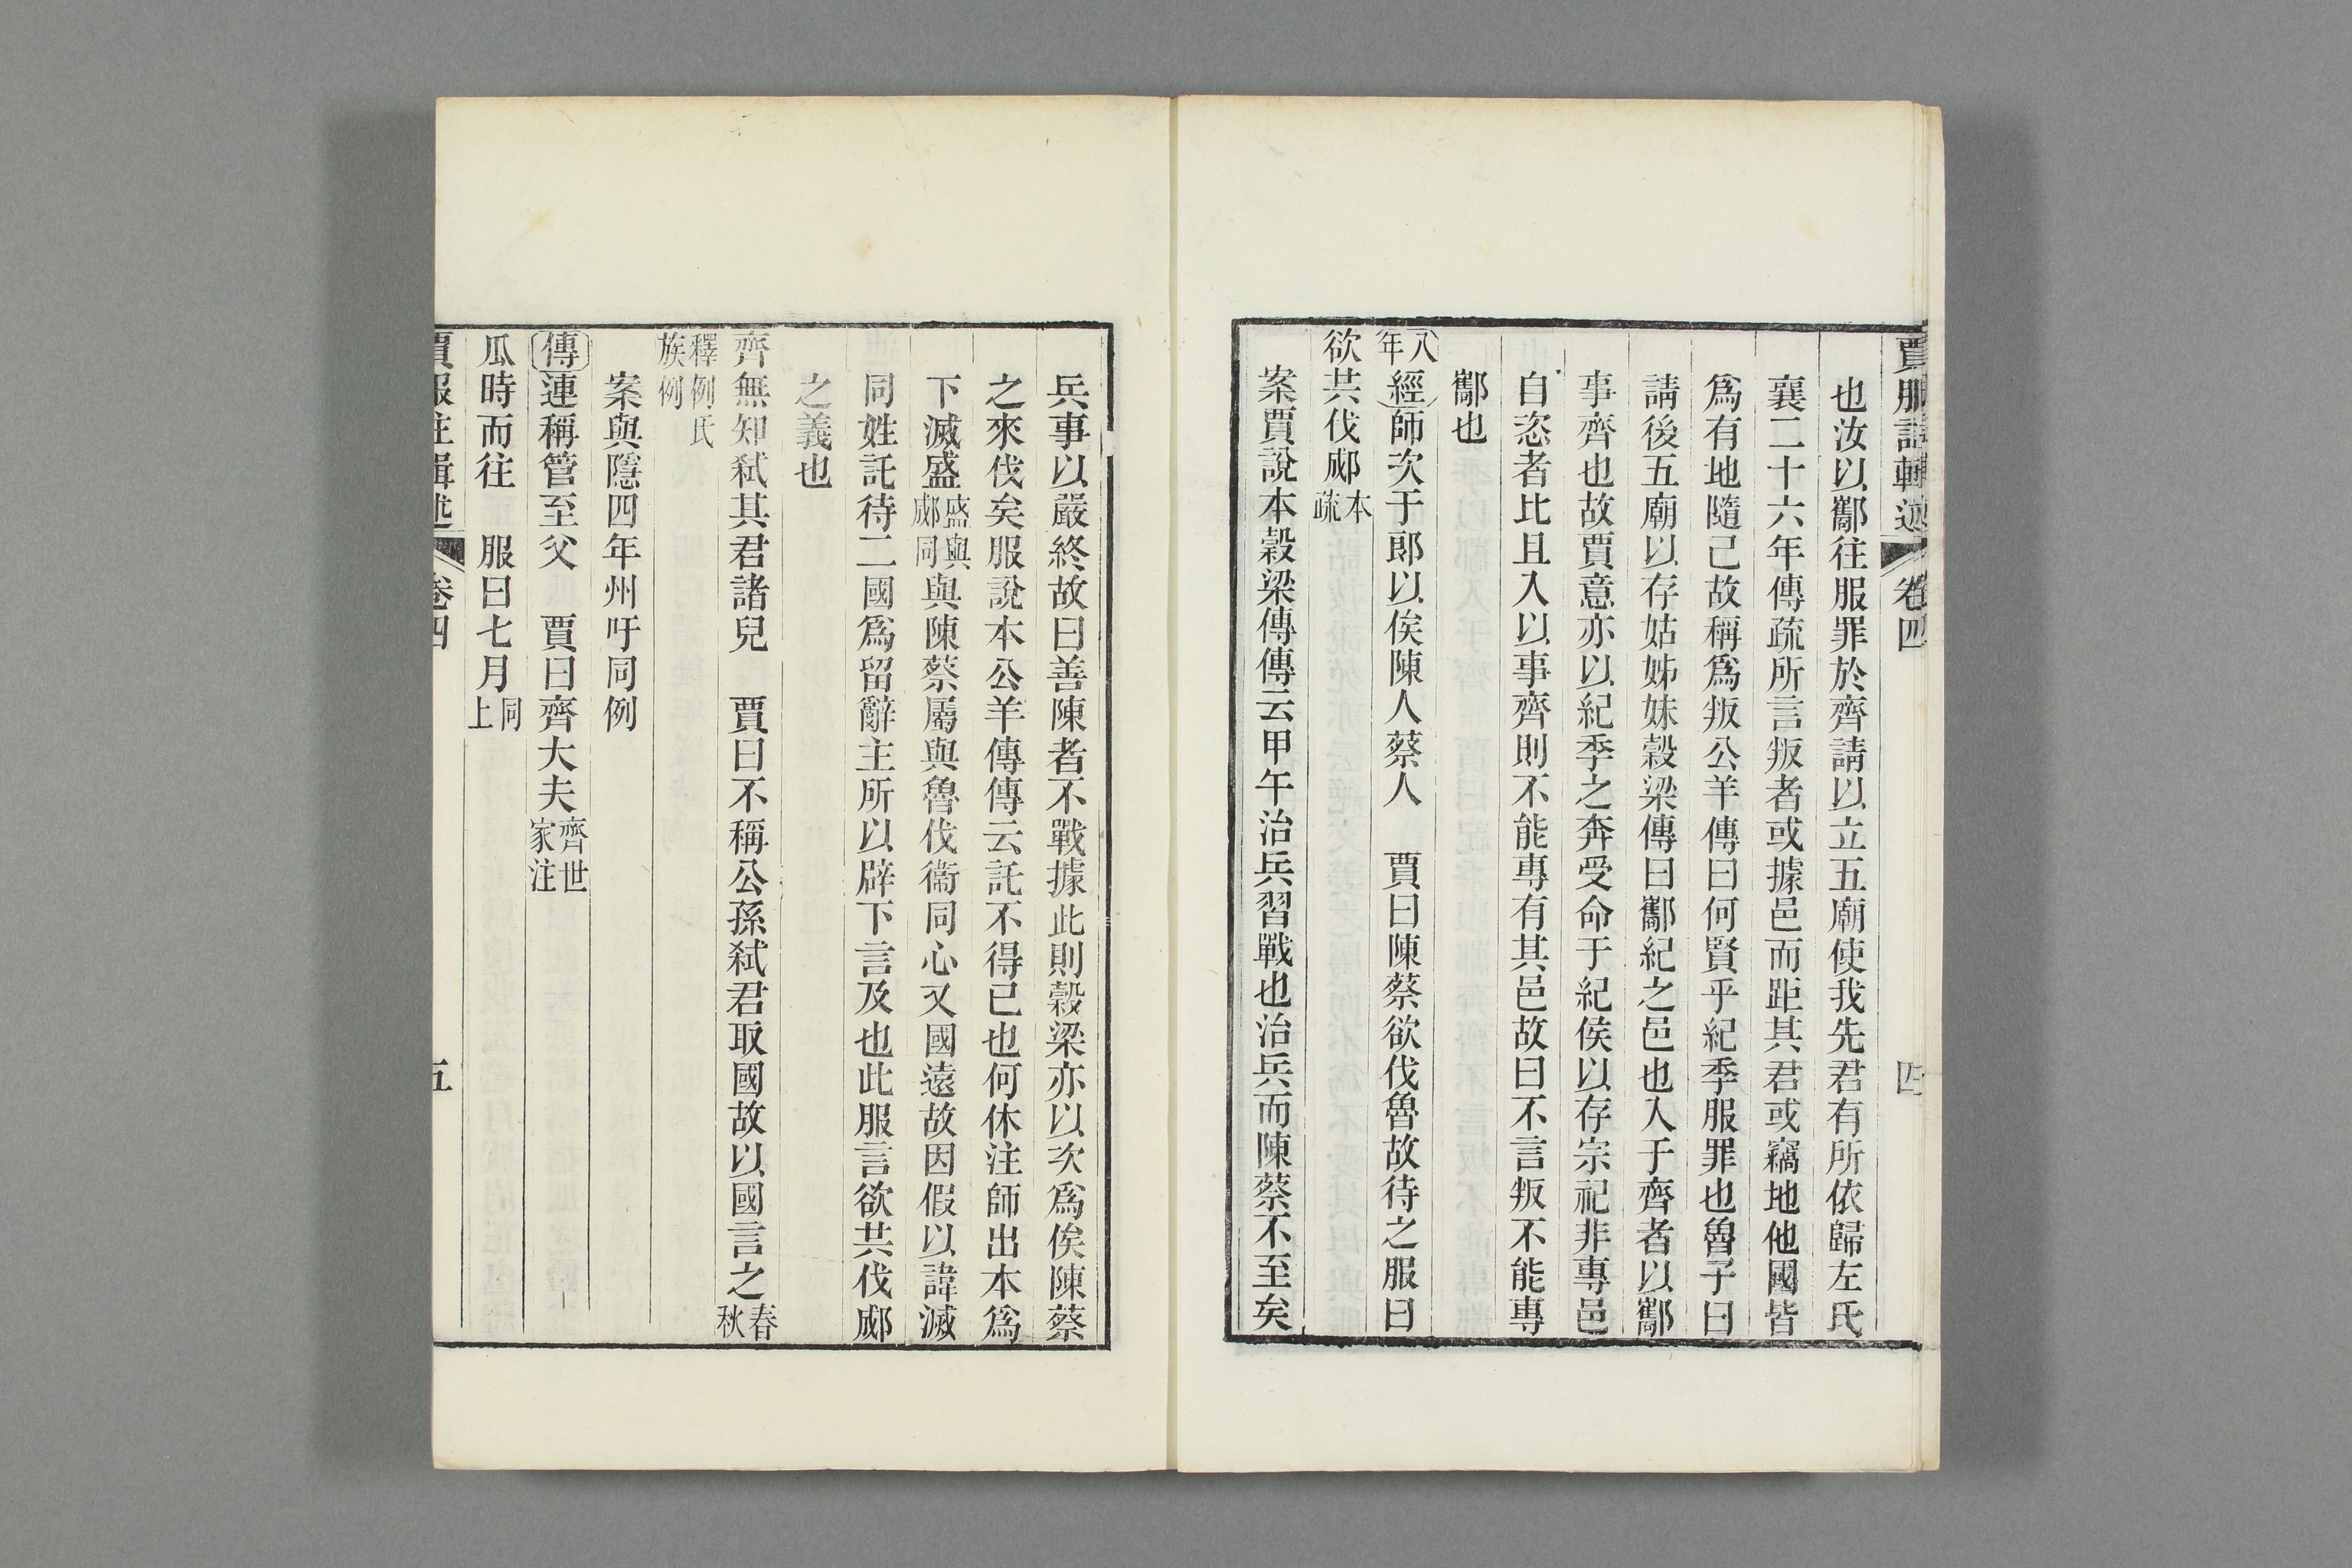 賈服註輯述 卷四 四
也汝以酅往服罪於齊請以立五廟使我先君有所依歸左氏
襄二十六年傳疏所言叛者或據邑而距其君或竊地他國皆
爲有地隨己故稱爲叛公羊傳曰何賢乎紀季服罪也魯子曰
請後五廟以存姑姊妹穀梁傳曰酅紀之邑也入于齊者以酅
事齊也故賈意亦以紀季之奔受命于紀侯以存宗祀非專邑
自恣者比且入以事齊則不能專有其邑故曰不言叛不能專
酅也
八年經師次于郎以俟陳人蔡人 賈曰陳蔡欲伐魯故待之服曰
欲共伐郕本疏
案賈說本穀梁傳傳云甲午治兵習戰也治兵而陳蔡不至矣
兵事以嚴終故曰善陳者不戰據此則穀梁亦以次爲俟陳蔡
之來伐矣服說本公羊傳傳云託不得已也何休注師出本爲
下滅盛盛與郕同與陳蔡屬與魯伐衞同心又國遠故因假以諱滅
同姓託待二國爲留辭主所以辟下言及也此服言欲共伐郕
之義也
齊無知弒其君諸兒 賈曰不稱公孫弒君取國故以國言之春秋
釋例氏族例
案與隱四年州吁同例
傳連稱管至父 賈曰齊大夫齊世家注
瓜時而往 服曰七月同上
賈服注輯述 卷四 五